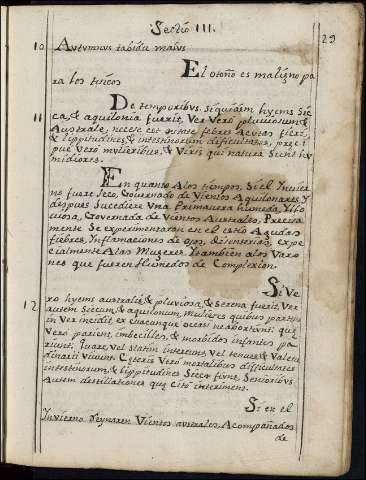 Sectio III.
29
10 Autumnus tabidis malus
El otoño es maligno pa
ra los tisicos
11 De temporibus. Siquidem hyems Sic
ca, & aquilonia fuerit, Ver vero pluviosum, &
Australe, necese est estate febres Acutas fieri,
& lippitudines, & intestinorum dificultates, preci
pue vero mulieribus, & Viris qui natura Sient hu
midiores.
En quanto A los tiempos, Si el Invier
no fuere Seco, Governado de Vientos Aquilonares, Y
despues Sucediere Una Primavera humeda, Y llo
viosa, Governada de Vientos Australes, Precisa
mente Se experimentaran en el estio Agudas
fiebres, Ynflamaciones de ojos, disenterias, expe
cialmente A las Mugeres, Y tambien a los Varo
nes que fueren Humedos de Complexion.
12 Si Ve
ro hyems australis, & pluviosa, & Serena fuerit, Ver
autem Siccum, & aquilonium, Mulieres quibus partus
in Ver incidit, ex quacunque ocasi neabortiunt: que
Vero pariunt, imbecilles, & morbidos infantes pa
riunt,
vivunt. Ceteris Vero mortalibus dificultates
intestinorum, & lippitudines Sicce fiunt, Senioribus
Autem destillationes que Cito interimunt.
Si en el
Invierno Reynaren Vientos australes, Acompañados
de